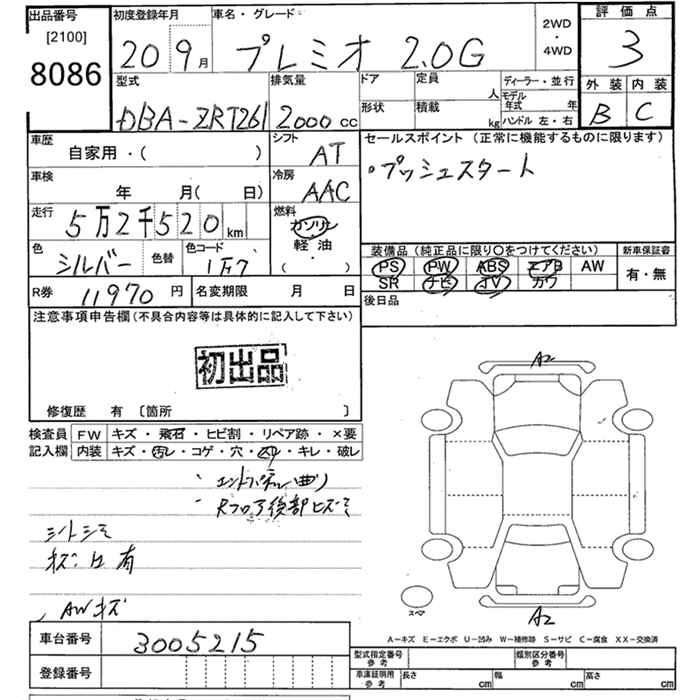 出品番号 初度登録年月 車名・グレード 2WD 評価点
[2100] 20 9月 プレミオ 2.0G ・ 3
8086 4WD
型式 排気量 ドア 定員 人 ディーラー・並行 外装 内装
DBA-ZRT261 2000cc 形状 積載 kg モデル年式 年 B C
ハンドル 左・右
車歴 自家用・( ) シフト AT セールスポイント (正常に機能するものに限ります)
車検 年 月( 日) 冷房 AAC ・プッシュスタート
走行 5万2千520km 燃料 ガソリン
軽油
( )
色 シルバー 色替 色コード 装備品 (純品に限り〇をつけてください) 新車保証書
PS PW ABS エアB AW 有・無
SR ナビ TV カワ
R券 11970円 名変期限 月 日 後日品
注意事項申告欄 (不具合内容等は具体的に記入して下さい)
初出品
修復歴 有 〔箇所 〕
検査員 FW キズ・飛石・ヒビ割・リペア跡・×要
記入欄 内装 キズ・汚レ・コゲ・穴・スレ・キレ・破レ
エンドパネル曲り
Rフロア後部ヒズミ
シートシミ
有
AWキズ
A2
A2
スペア
A-キズ E-エクボ U-凹み W-補修跡 S-サビ C-腐食 XX-交換済
車台番号 3005215 型式指定番号 参考 類別区分番号 参考
登録番号 車庫証明用 参考 長さ cm 幅 cm 高さ cm